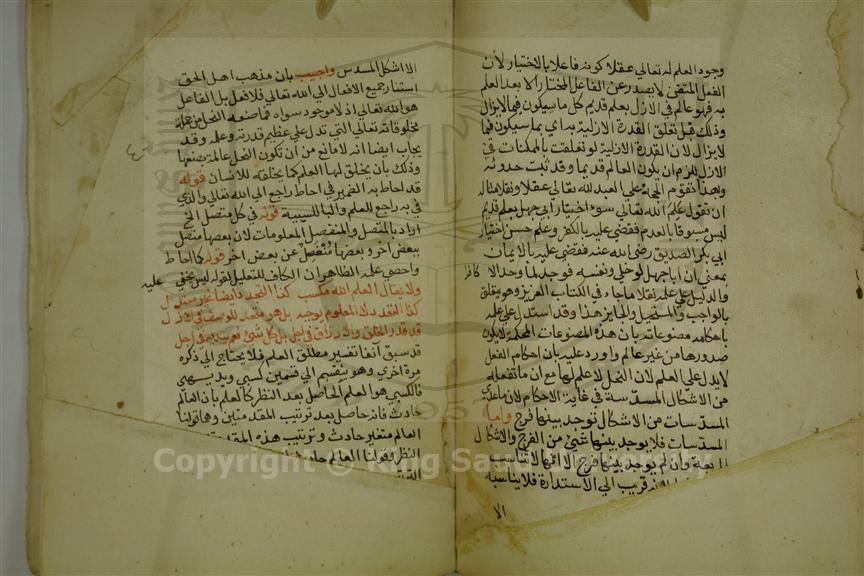 وجود العلم له تعالي عقلا كونه فاعلا بالاختيار لأن
الفعل المتقن لا يصدر عن الفاعل المختار الا بعد العلم
به فهو عالم في الازل بعلم قديم كل ما سيكون فيما لايزال
وذلك قبل تعلق القدرة الازلية به اي بما سيكون فيما
لايزال لان القدرة الازلية لو تعلقت بالممكنات في
الازل للزم ان يكون العالم قديما وقد ثبت حدوثه
وبهذا تقوم الحجة علي العبد لله تعالي عقلا ونقلا مثاله
ان تقول علم الله تعالي سوء اختيار أبي جهل بعلم قديم
ليس مسبوقا بالعدم فقضي عليه بالكفر وعلم حسن اختيار
أبي بكر الصديق رضي الله عنه فقضي عليه بالايمان
بمعني ان أبا جهل لو خلي ونفسه فوجد لما وجد الا كافر
والدليل علي علمه نقلا ما جاء في الكتاب العزيز وهو يتعلق
بالواجب والمستحيل والجايز هذا وقد استدل علي علمه
باحكامه مصنوعاته بان هذه المصنوعات المحكمة لا يكون
صدورها من غير عالم واورد عليه بان احكام الفعل
لا يدل علي العلم لان النحل لا علم لها مع ان ما تفعله
من الاشكال المسدسة في غاية الاحكام لان ما عدي
المسدسات من الاشكال توجد بينها فرج واما
المسدسات فلا يوجد بينها شئ من الفرج والاشكال
المربعة وان لم يوجد بينها فرج الا انها لا تناسب
قريب الي الاستدارة فلا يناسبه
الا
الا اشكل المسدس واجيب بان مذهب اهل الحق
استناد جميع الافعال الي الله تعالي فلا فعل بل الفاعل
هو الله تعالي اذ لا موجود سواه فما صنعه النحل من جملة
مخلوقاته تعالي التي تدل علي عظيم قدرته وعلمه وقد
يجاب ايضا انه لا مانع من أن تكون النحل عالمة بصنعها
وذلك بان يخلق لها العلم كما يخلقه للانسان قوله
قد احاط به الضمير في احاط راجع الي الله تعالي والذي
في به راجع للعلم والبا للسببية قوله في كل متصل الخ
اراد بالمتصل والمنفصل المعلومات لان بعضها متصل
ببعض آخر وبعضها منفصل عن بعض آخر قوله كما احاط
واحصي علمه الظاهر ان الكاف للتعليل لقوله ليس يخفي عليه
ولا يقال العلم الله مكتسب كذا التجدد ايضا
كذا التعدد المعلوم بوجه بل هو متحد للوصف في الازل
قد قدر الخلق والارزاق في ازل بل كل شئ
قد سبق آنفا تفسير مطلق العلم فلا يحتاج الي ذكره
مرة اخري وهو ينقسم الي قسمين كسبي وبديهي
فالكسبي هو العلم الحاصل بعد النظر كالعلم بان العالم
حادث فانه حاصل بعد ترتيب المقدمتين وهما قولنا
العالم متغير حادث وترتيب هذه
النظر وقولنا العالم حادث
Copyright © King Saud University
1957